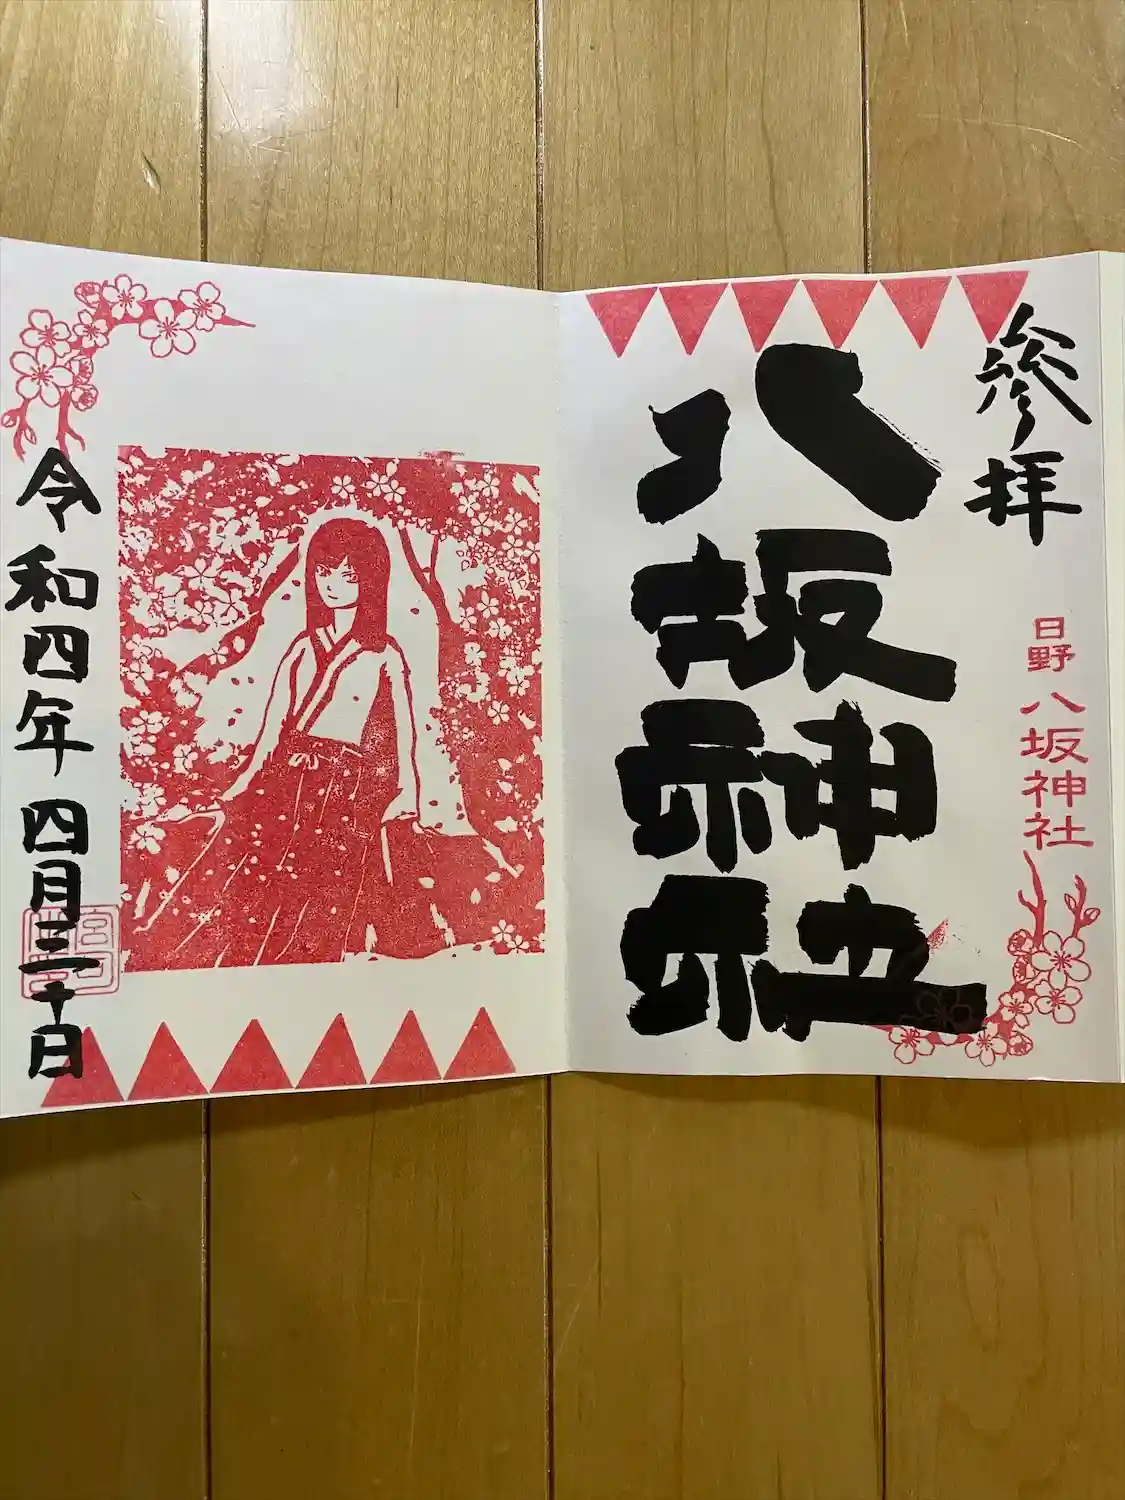 參拝
日野八坂神社
八坂神社
令和四年 四月三十日